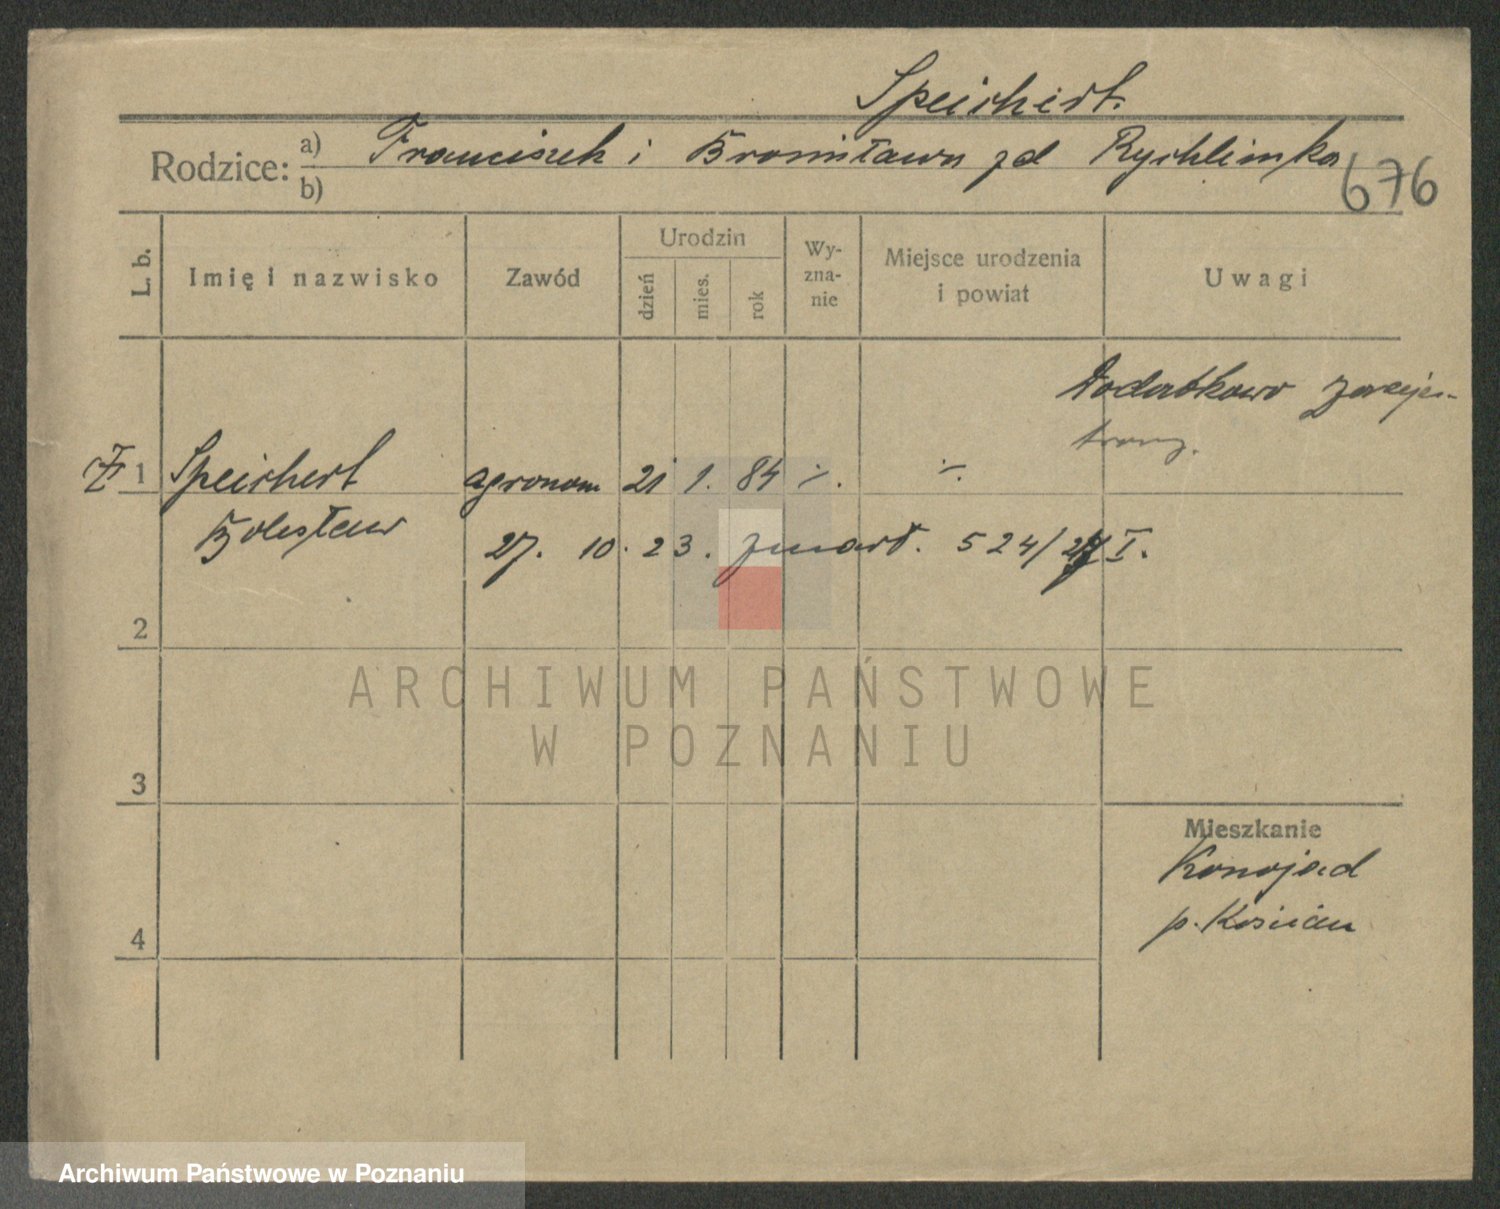 Speichert.
Rodzice: a) Franciszek i Bronisława zd Rychlińska
b)
676
L. b.
Imię i nazwisko
Zawód
Urodzin
dzień
mies.
rok
Wy-
zna-
nie
Miejsce urodzenia
i powiat
Uwagi
Dodatkowo zareje-
strowy.
1 Speichert agronom 21 1. 84 ·/. ·/.
Bolesław 27. 10. 23. zmarł. 524/27 I.
2
ARCHIWUM PAŃSTWOWE
W POZNANIU
3
Mieszkanie
Konojad
p. Kościan
4
Archiwum Państwowe w Poznaniu